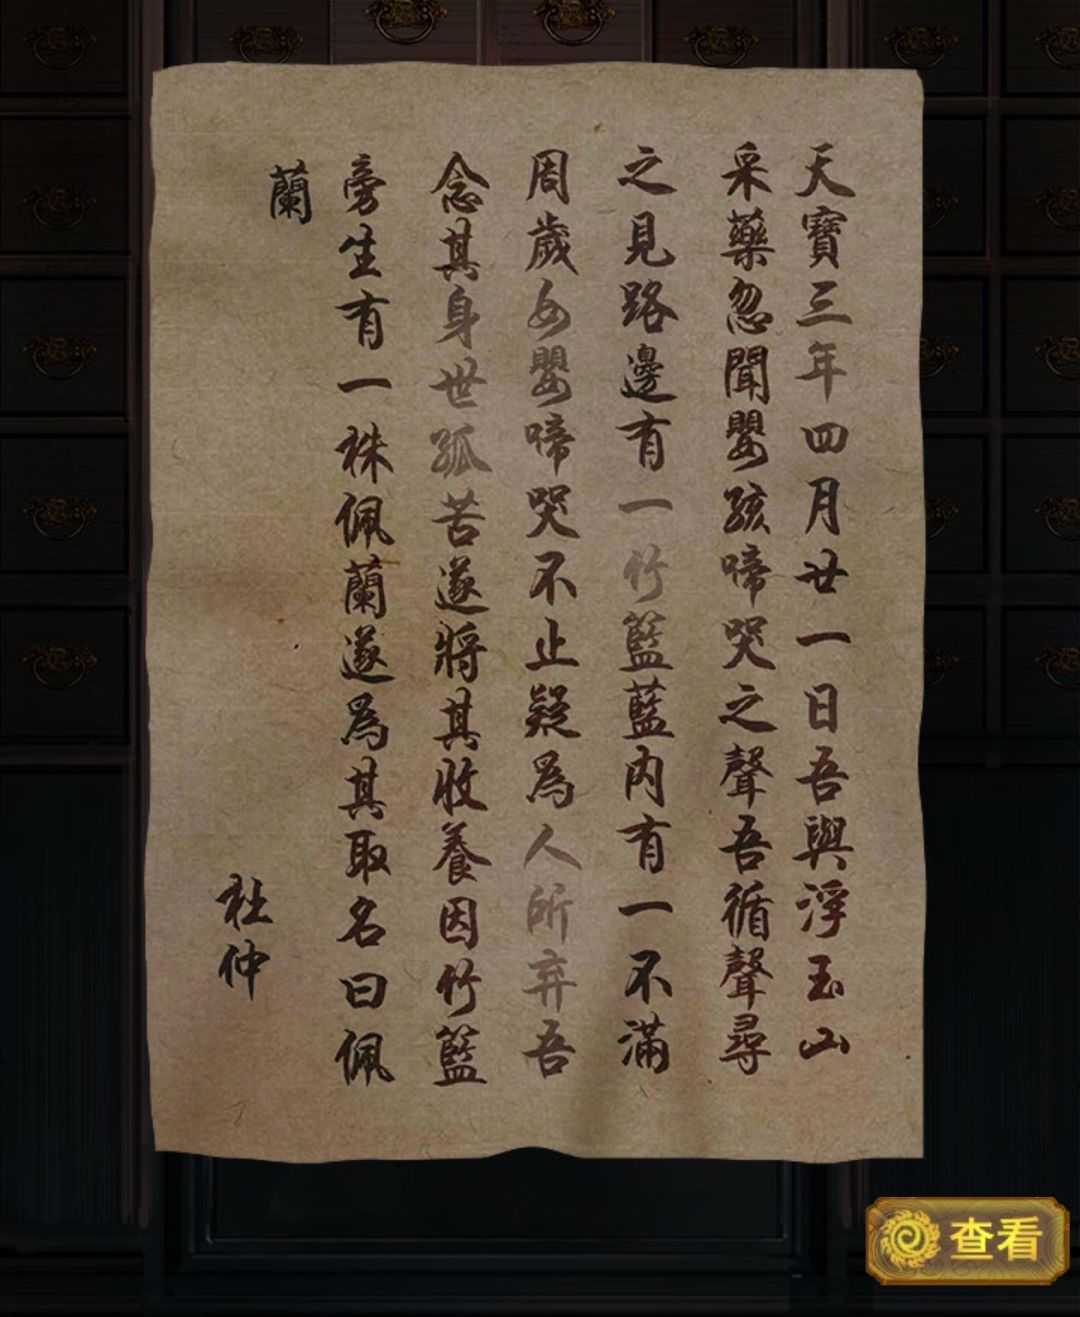 天寶三年四月廿一日吾與浮玉山
采藥忽聞嬰孩啼哭之聲吾循聲尋
之見路邊有一竹籃藍内有一不滿
周歲女嬰啼哭不止疑爲人所弃吾
念其身世孤苦遂將其收養因竹籃
旁生有一株佩蘭遂爲其取名曰佩
蘭
杜仲
查看